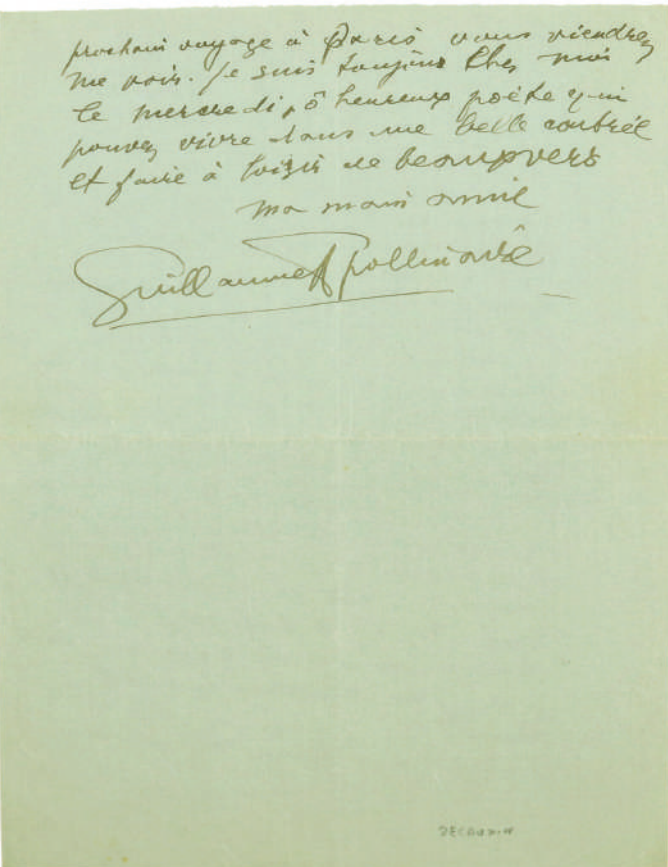 prochain voyage à Paris vous viendrez
me voir. Je suis toujours chez moi
le mercredi, ô heureux poète qui
pouvez vivre dans une belle contrée
et faire à loisir de beaux vers
Ma main amie
Guillaume Apollinaire